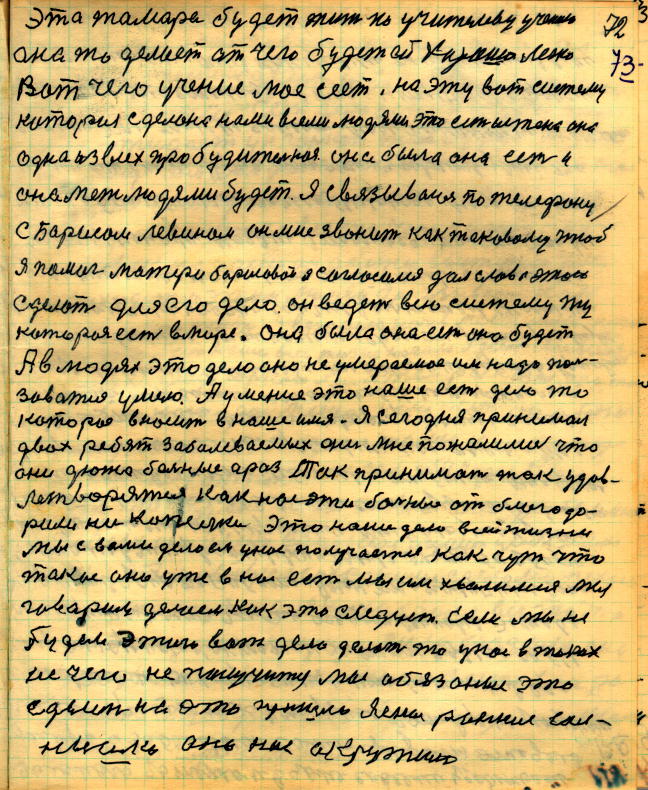 Эта тамара будет жит по учителеву учению 72
она то делает от чего будет ей хорошо легко 73
Вот чего учение мое сеет. на эту вот систему
которая сделона нами всеми людями это есть истена она
одна из всих пробудительная она была она ест и
она меж людями будет. Я связывався по телефону
с Барисом левином он мне звонит как таковому чтоб
я помог матери борисовой я согласился дал слово этого
сделат для его дело. он ведет всю систему ту
которая ест в мире. она была она ест она будет
А в людях это дело оно не умераемое им надо пол-
зоватся умело. А умение это наше ест дело то
которое вносит в наше имя. Я сегодня принимал
двох ребят заболеваемых они мне пожалилис что
они дюжа болные а раз так принимат так удов-
летворятся как нас эти болные отблагодо-
рили ни копейки это наше дело всей жизни
мы с вами делоем унас получается как чут что
такое оно уже в нас ест мы им хвалимся мы
говорим делаем как это следует. Если мы не
будем этого вот дела делат то унас в таких
не чего не получится мы обязаные это
сдвинут на это ранние сол-
нышко оно нас окружило